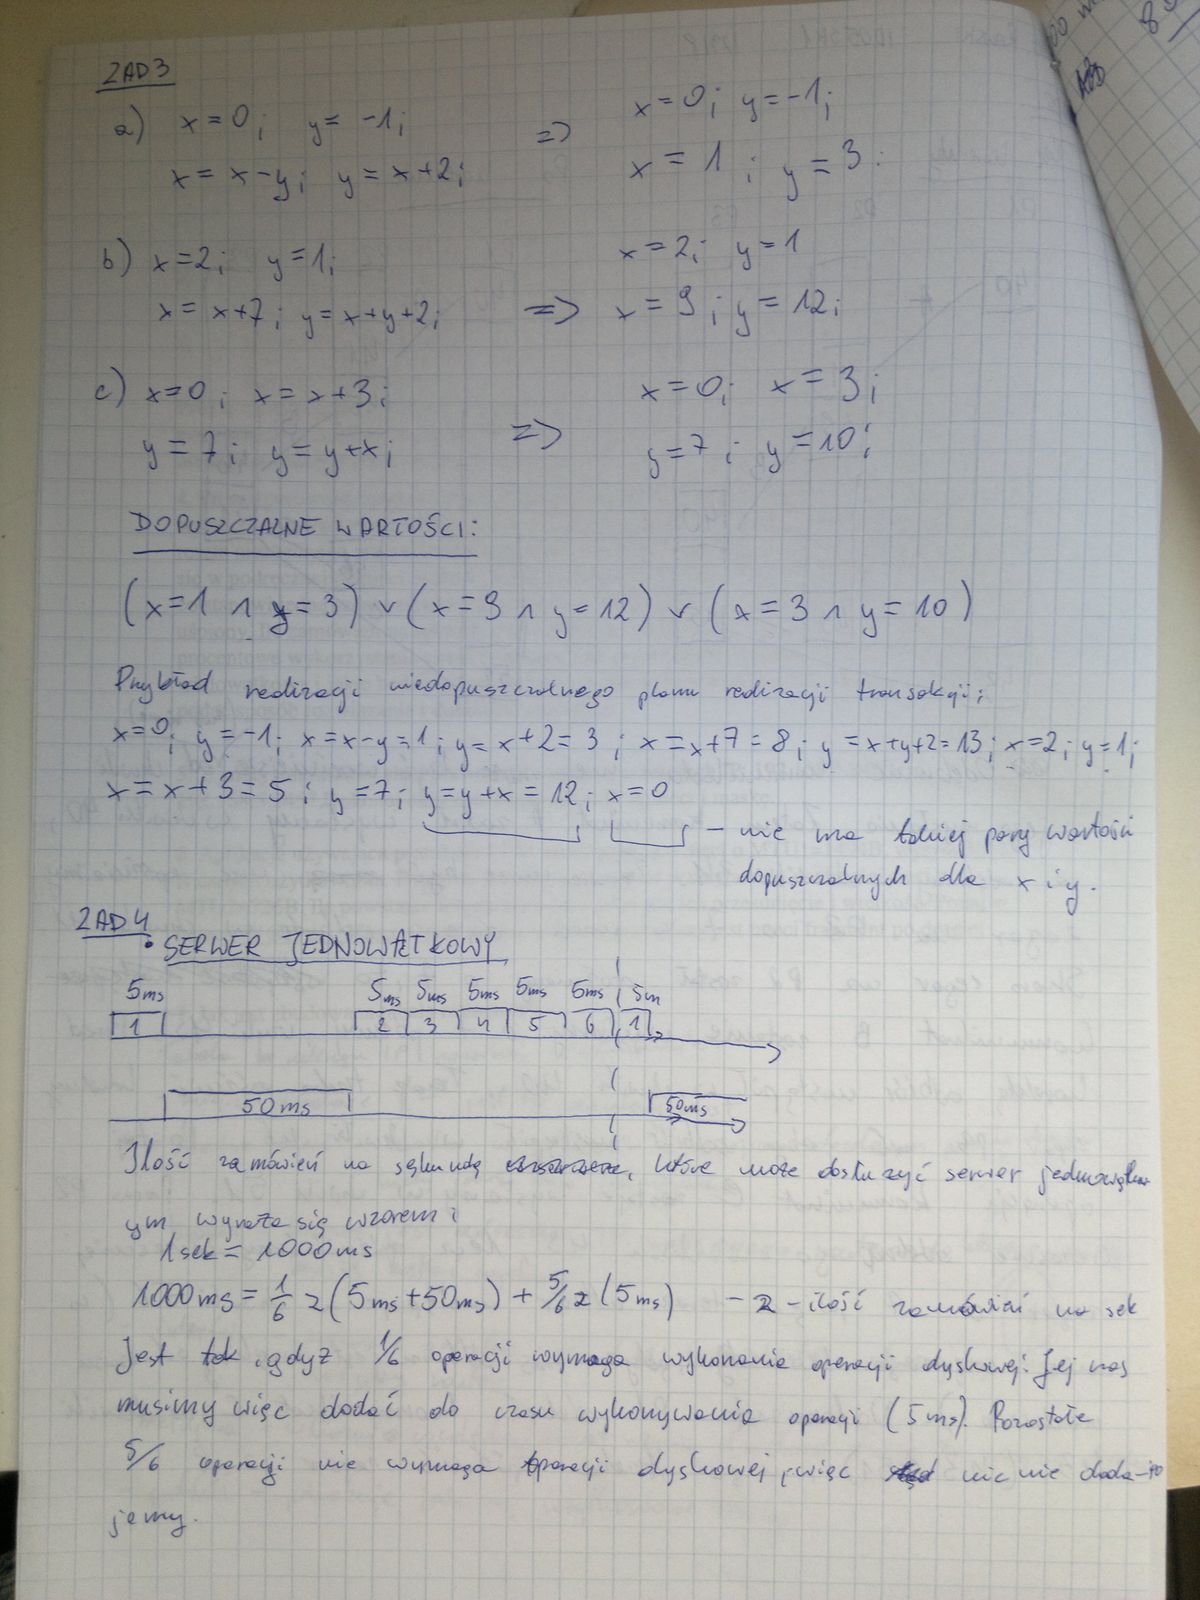 ZAD 3
a) x=0; y=-1; => x=0; y=-1;
x=x-y; y=x+2; x=1; y=3;
b) x=2; y=1; x=2; y=1
x=x+7; y=x+y+2; => x=9; y=12;
c) x=0; x=x+3; x=0; x=3;
y=7; y=y+x; => y=7; y=10;
DOPUSZCZALNE WARTOŚCI:
(x=1 ∧ y=3) ∨ (x=9 ∧ y=12) ∨ (x=3 ∧ y=10)
Przykład realizacji niedopuszczalnego planu realizacji transakcji:
x=0; y=-1; x=x-y=1; y=x+2=3; x=x+7=8; y=x+y+2=13; x=2; y=1;
x=x+3=5; y=7; y=y+x=12; x=0
- nie ma takiej pary wartości
dopuszczalnych dla x i y.
ZAD 4
• SERWER JEDNOWĄTKOWY
5ms 5ms 5ms 5ms 5ms 5ms 5m
1 2 3 4 5 6 1
50ms 50ms
Ilość zamówień na sękundę, które może obsłużyć serwer jednowątkow
ym wyraża się wzorem:
1sek = 1000ms
1000ms = 1/6 z (5ms+50ms) + 5/6 z (5ms) - z - ilość zamówień na sek
Jest tak, gdyż 1/6 operacji wymaga wykonania operacji dyskowej. Jej
musimy więc dodać do czasu wykonywania operacji (5ms). Pozostałe
5/6 operacji nie wymaga operacji dyskowej, więc nic nie doda-
jemy.
8